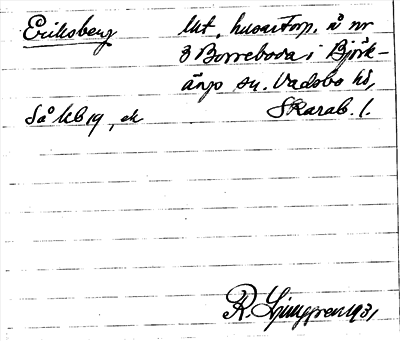 Eriksberg
lht, husartorp. å nr
3 Borreboda i Björk-
ängs sn. Vadsbo hd,
Skarab. l.
Så kb 19, ek
R. Ljunggren 1931